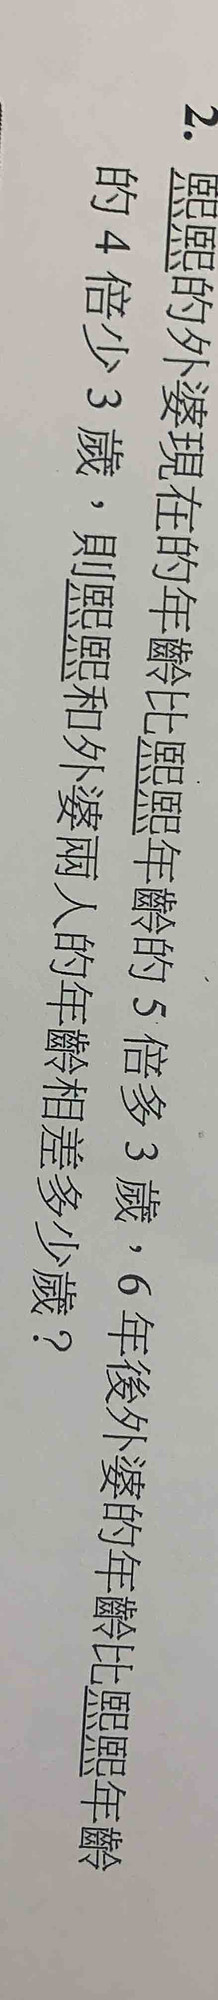 2. 熙熙的外婆現在的年齡比熙熙年齡的 5 倍多 3 歲，6 年後外婆的年齡比熙熙年齡
的 4 倍少 3 歲，則熙熙和外婆兩人的年齡相差多少歲？